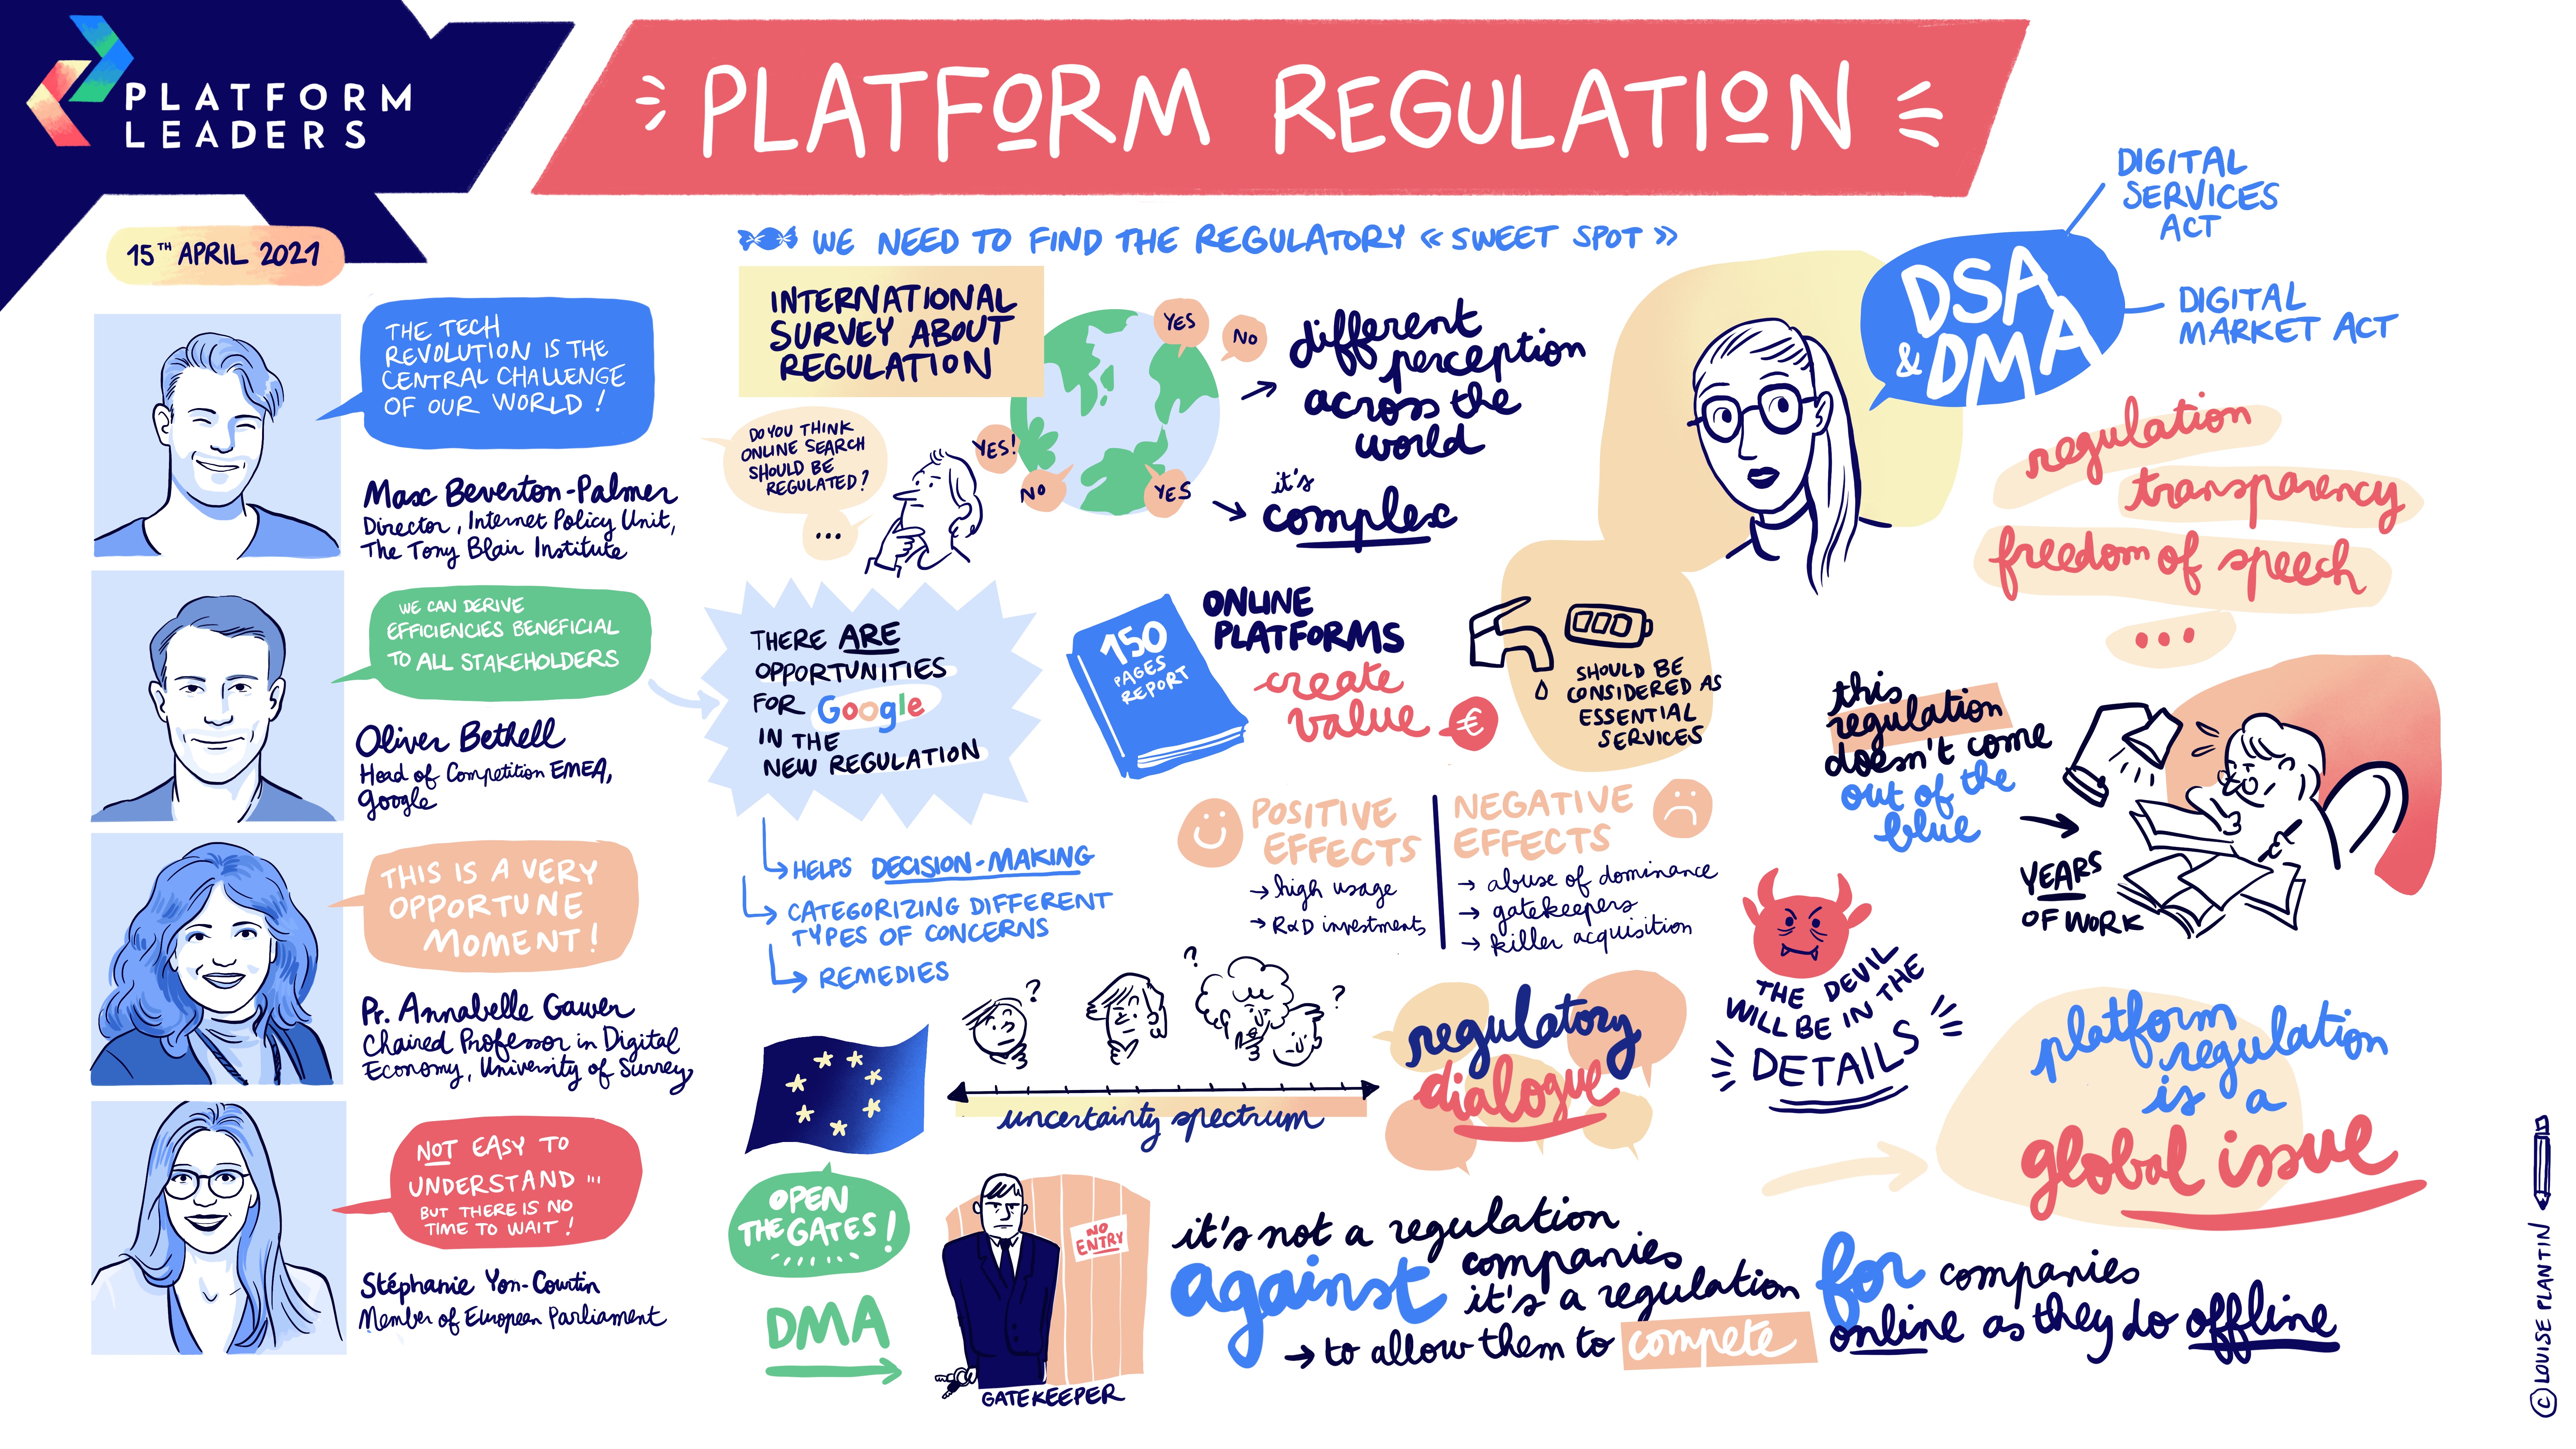 PLATFORM
LEADERS
PLATFORM REGULATION
15TH APRIL 2021
THE TECH
REVOLUTION IS THE
CENTRAL CHALLENGE
OF OUR WORLD !
Max Beverton-Palmer
Director, Internet Policy Unit,
The Tony Blair Institute
WE CAN DERIVE
EFFICIENCIES BENEFICIAL
TO ALL STAKEHOLDERS
Oliver Bethell
Head of Competition EMEA,
Google
THIS IS A VERY
OPPORTUNE
MOMENT !
Pr. Annabelle Gawer
Chaired Professor in Digital
Economy, University of Surrey
NOT EASY TO
UNDERSTAND ...
BUT THERE IS NO
TIME TO WAIT !
Stéphanie Yon-Courtin
Member of European Parliament
WE NEED TO FIND THE REGULATORY « SWEET SPOT »
INTERNATIONAL
SURVEY ABOUT
REGULATION
DO YOU THINK
ONLINE SEARCH
SHOULD BE
REGULATED ?
...
YES
NO
YES!
NO
YES
→ different
perception
across the
world
→ it's
complex
THERE ARE
OPPORTUNITIES
FOR Google
IN THE
NEW REGULATION
HELPS DECISION-MAKING
CATEGORIZING DIFFERENT
TYPES OF CONCERNS
REMEDIES
150
PAGES
REPORT
ONLINE
PLATFORMS
create
value
€
SHOULD BE
CONSIDERED AS
ESSENTIAL
SERVICES
POSITIVE
EFFECTS
→ high usage
→ R&D investments
NEGATIVE
EFFECTS
→ abuse of dominance
→ gatekeepers
→ killer acquisition
? ? ?
uncertainty spectrum
regulatory
dialogue
DSA
& DMA
DIGITAL
SERVICES
ACT
DIGITAL
MARKET ACT
regulation
transparency
freedom of speech
...
this
regulation
doesn't come
out of the
blue
→
YEARS
OF WORK
THE DEVIL
WILL BE IN THE
DETAILS
platform
regulation
is a
global issue
OPEN
THE GATES !
DMA
NO
ENTRY
GATEKEEPER
it's not a regulation
against companies
it's a regulation for companies
→ to allow them to compete online as they do offline
© LOUISE PLANTIN